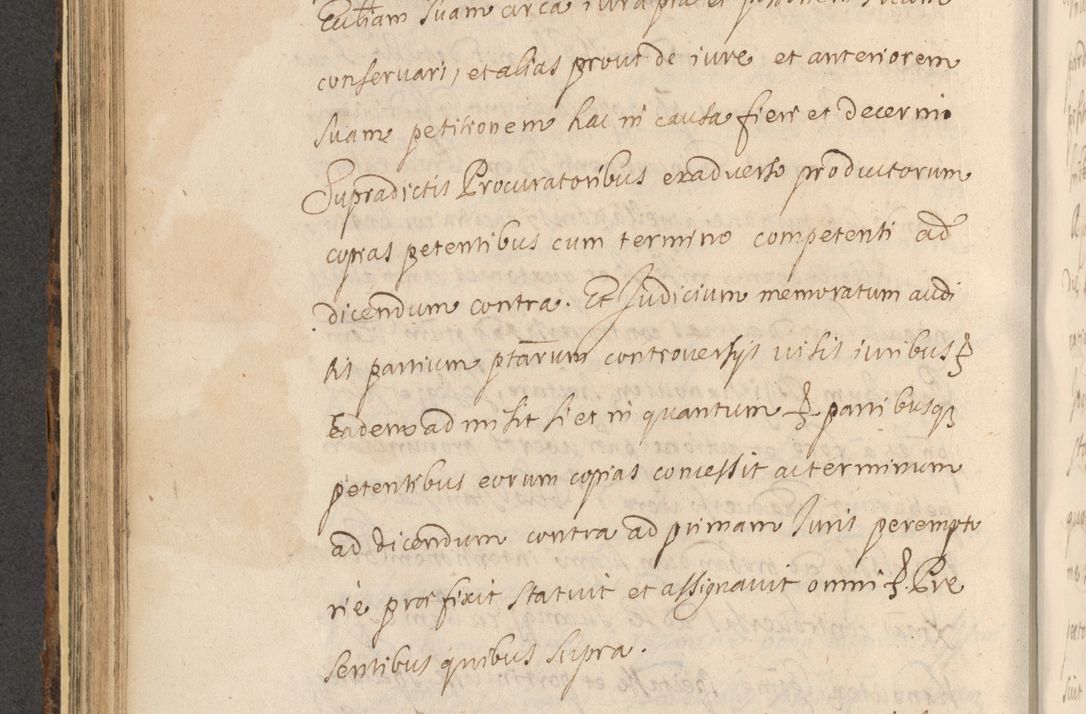 Eccliam Suam circa iura
conservari, et alias prout de iure et anteriorem
Suam petitionem hac in causa fieri et decerni
Supradictis Procuratoribus exadverso productorum
copias petentibus cum termino competenti ad
dicendum contra. Et Judicium memoratum audi
tis partium ptarum controversijs visis iuribus
Eadem admisit si et in quantum partibusq
petentibus eorum copias concessit ac terminum
ad dicendum contra ad primam Juris perempto
rie præfixit statuit et assignavit omni Præ
sentibus quibus supra.